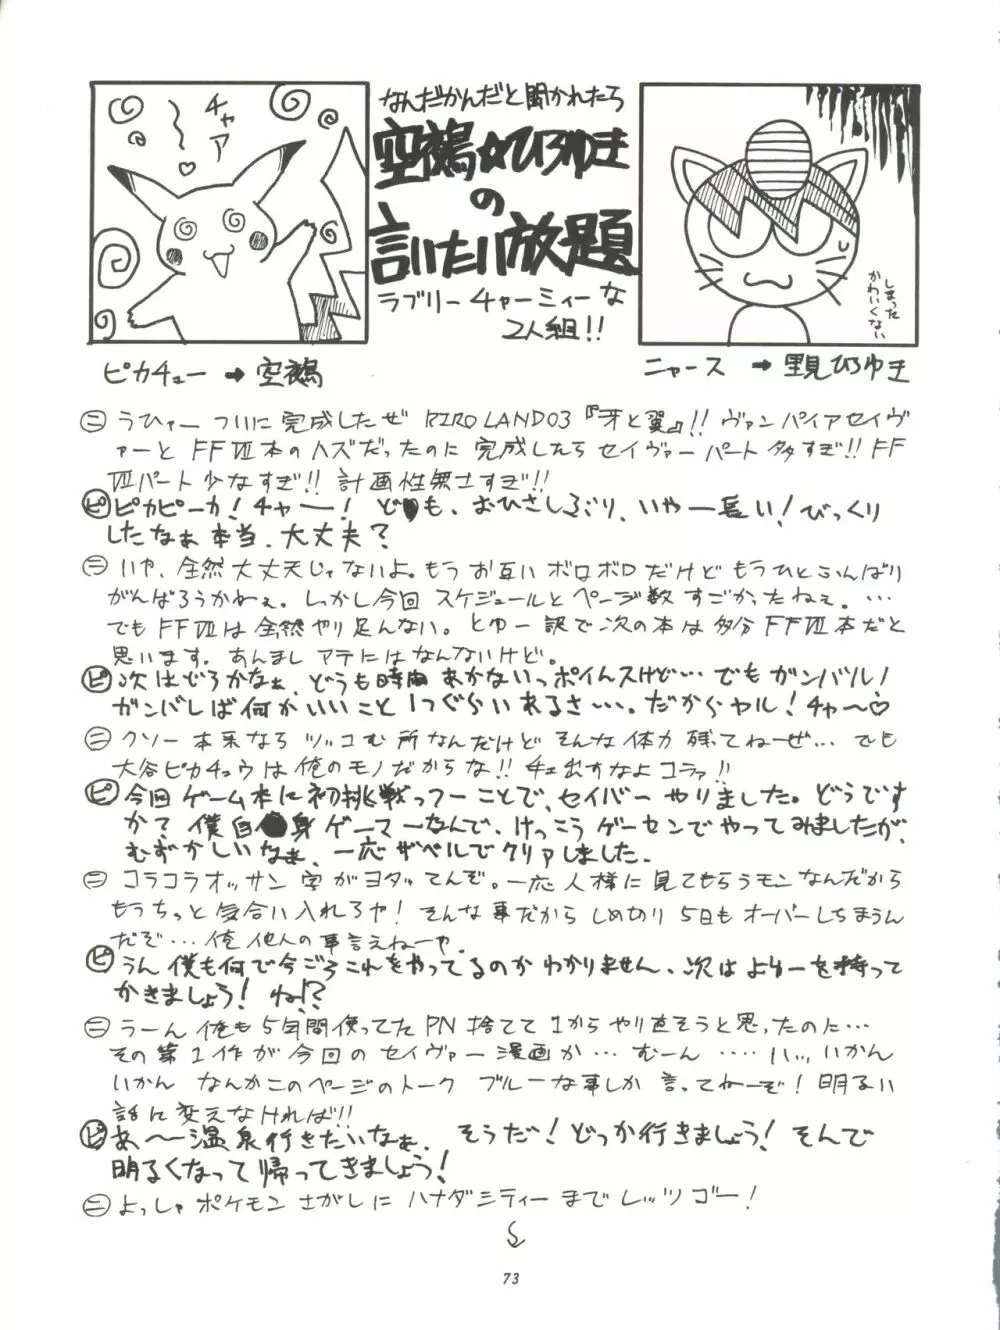 チャア
なんだかんだと聞かれたら
空鵺☆ひろゆき
の
言いたい放題
ラブリーチャーミィーな
2人組!!
しまった
かわいくない
ピカチュー→空鵺
ニャース→里見ひろゆき
㊁うひゃーついに完成したぜ RIROLAND03『牙と翼』!! ヴァンパイアセイヴ
ァーとFFⅦ本のハズだったのに完成したらセイヴァーパート多すぎ!!FF
Ⅶパート少なすぎ!! 計画性無さすぎ!!
ピ ピカピーカ!チャー!ど も、おひさしぶり、いやー長い!びっくり
したなぁ本当、大丈夫?
㊁いや、全然大丈夫じゃないよ。もうお互いボロボロだけどもうひとふんばり
がんばろうかねぇ。しっかし今回スケジュールとページ数すごかったねぇ。…
でもFFⅦは全然やり足んない。とゆー訳で次の本は多分FFⅦ本だと
思います。あんましアテにはなんないけど。
ピ 次はどうかなぁ、どうも時間あかないっポイんスけど…でもガンバル!
ガンバレば何かいいこと1つぐらいあるさ…。だからヤル!チャ〜♡
㊁クソー本来ならツッコむ所なんだけどそんな体力残ってねーぜ…でも
大谷ピカチュウは俺のモノだからな!!チェ出すなよコラァ!!
ピ 今回ゲーム本に初挑戦っつーことで、セイバーやりました。どうです
か?僕自 身ゲーマーなんで、けっこうゲーセンでやってみましたが、
むずかしいなぁ、一応ザベルでクリアしました。
㊁コラコラオッサン字がヨタッてんぞ。一応人様に見てもらうモンなんだから
もうちっと気合い入れろヤ!そんな事だからしめ切り5日もオーバーしちまうん
だぞ…俺他人の事言えねーや。
ピ うん僕も何で今ごろこれをやってるのかわかりません、次はよゆーを持って
かきましょう!ね!?
㊁うーん俺も5年間使ってたPN捨てて1からやり直そうと思ったのに…
その第1作が今回のセイヴァー漫画か…むーん……ハッ、いかん
いかんなんかこのページのトークブルーな事しか言ってねーぞ!明るい
話に変えなければ!!
ピ あ〜温泉行きたいなぁ、そうだ!どっか行きましょう!そんで
明るくなって帰ってきましょう!
㊁よっしゃポケモンさがしにハナダシティーまでレッツゴー!
73